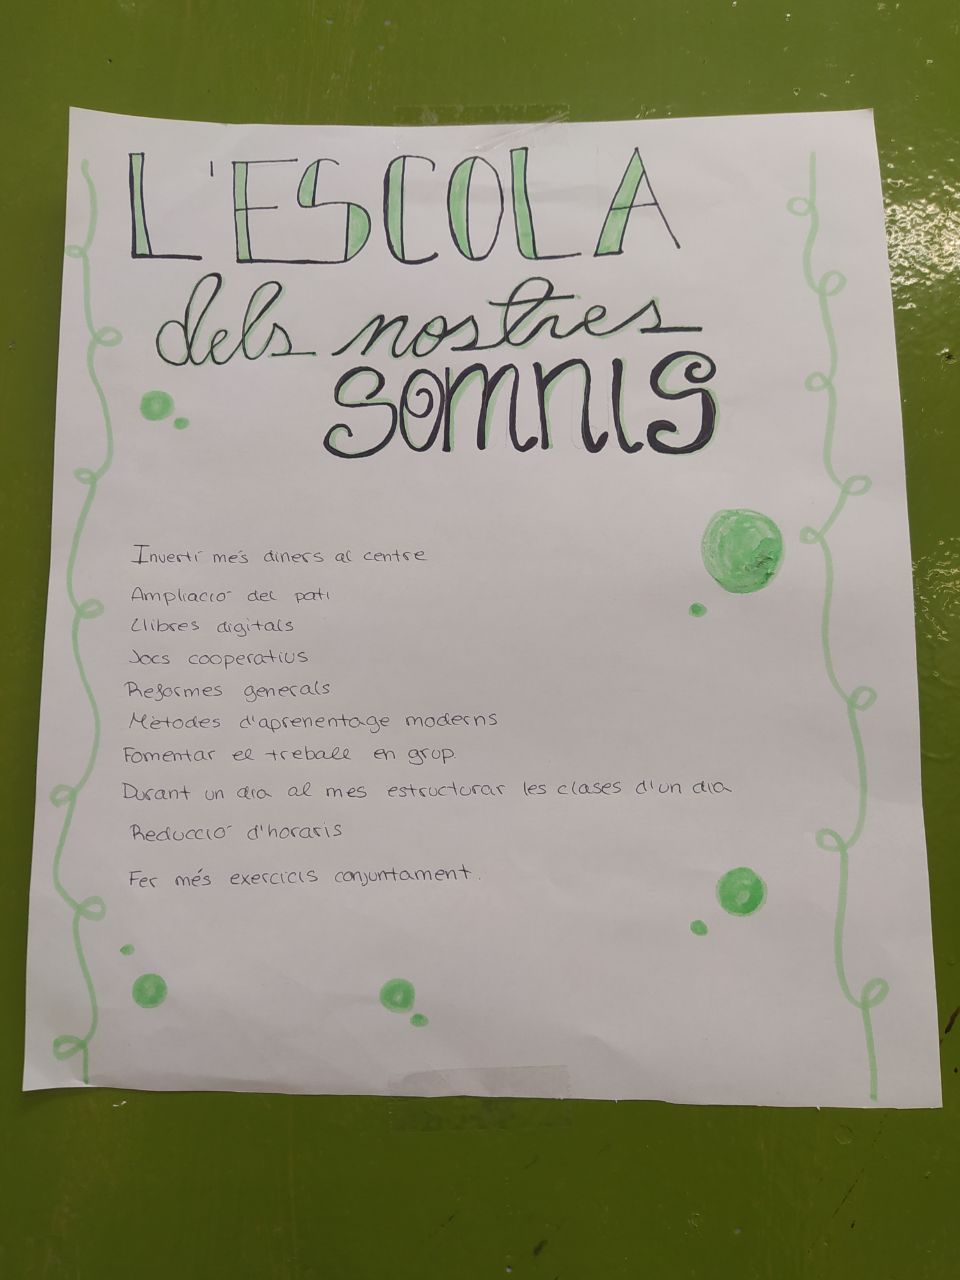 L'ESCOLA
dels nostres
SOMNIS
Invertí més diners al centre
Ampliació del pati
Llibres digitals
Jocs cooperatius
Reformes generals
Mètodes d'aprenentage moderns
Fomentar el treball en grup.
Durant un dia al mes estructurar les clases d'un dia
Reducció d'horaris
Fer més exercicis conjuntament.